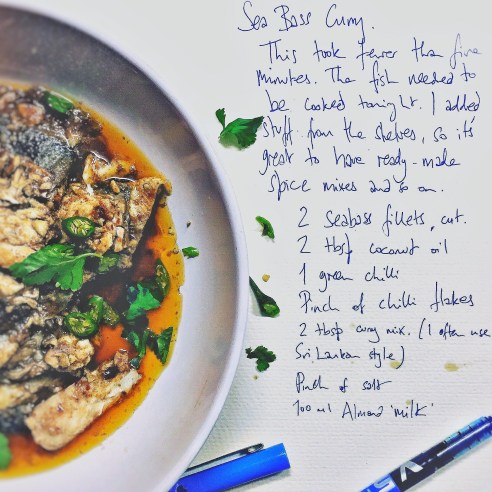 Sea Bass Curry.
This took fewer than five
minutes. The fish needed to
be cooked tonight. I added
stuff from the shelves, so it's
great to have ready-made
spice mixes and so on.
2 Seabass fillets, cut.
2 tbsp coconut oil
1 green chilli
Pinch of chilli flakes
2 tbsp curry mix. (I often use
Sri Lankan style)
Pinch of salt
100 ml Almond 'milk'